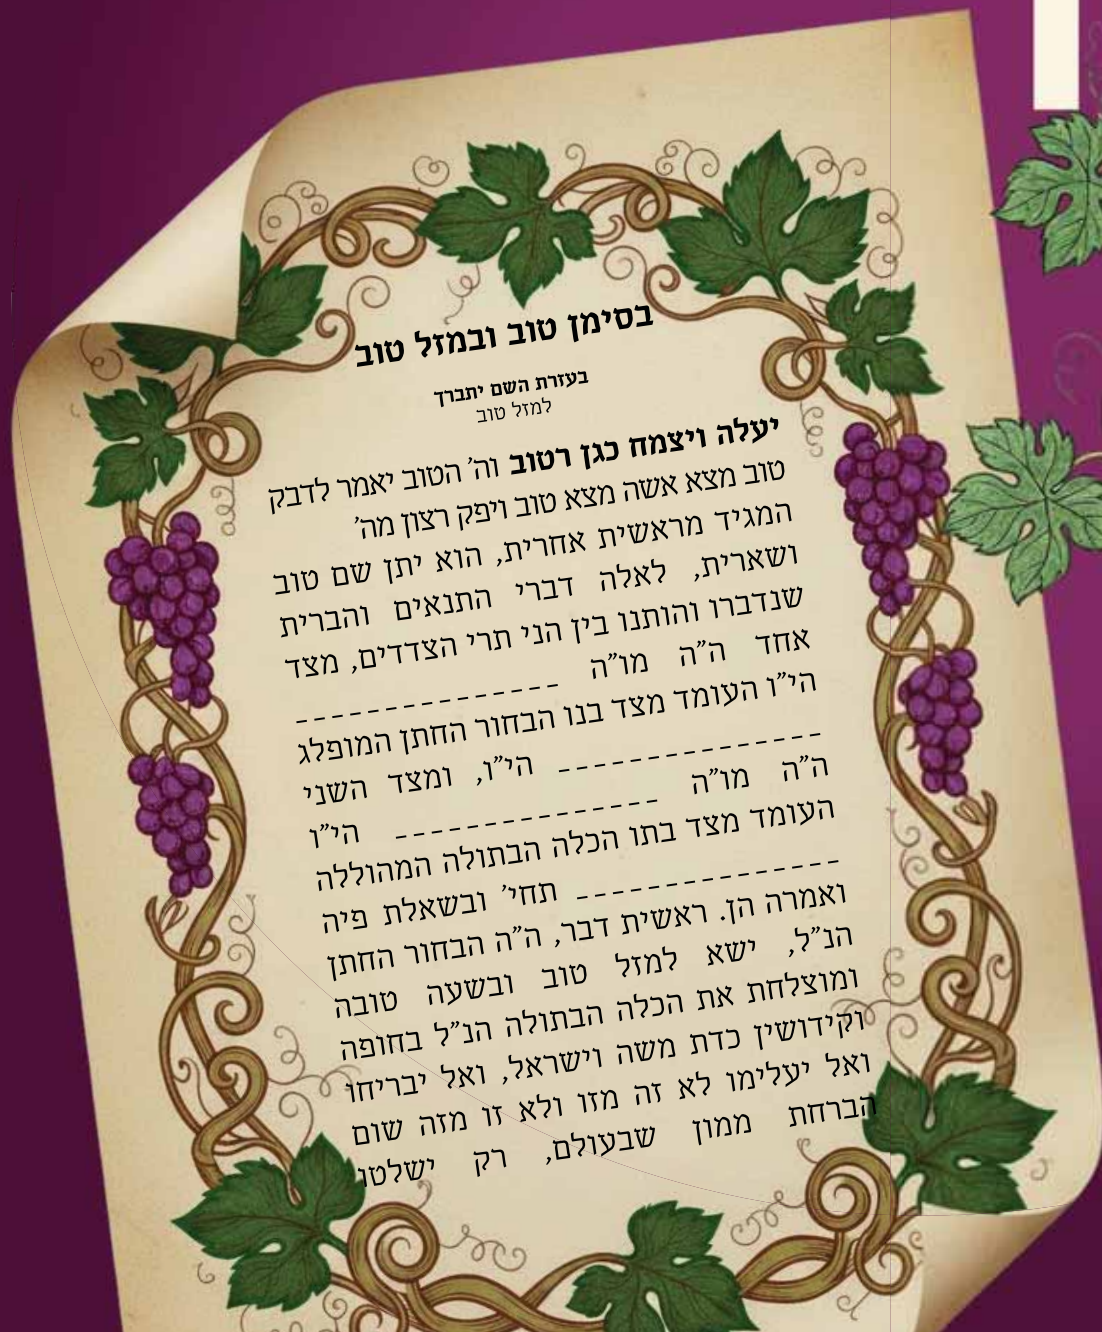 בסימן טוב ובמזל טוב
בעזרת השם יתברך
למזל טוב
יעלה ויצמח כגן רטוב וה׳ הטוב יאמר לדבק
טוב מצא אשה מצא טוב ויפק רצון מה׳
המגיד מראשית אחרית, הוא יתן שם טוב
ושארית, לאלה דברי התנאים והברית
שנדברו והותנו בין הני תרי הצדדים, מצד
אחד ה״ה מו״ה _ _ _ _ _ _ _ _ _ _ _ _ _ _
הי״ו העומד מצד בנו הבחור החתן המופלג
_ _ _ _ _ _ _ _ _ _ _ _ _ _ הי״ו, ומצד השני
ה״ה מו״ה _ _ _ _ _ _ _ _ _ _ _ _ _ _ הי״ו
העומד מצד בתו הכלה הבתולה המהוללה
_ _ _ _ _ _ _ _ _ _ _ _ _ _ תחי׳ ובשאלת פיה
ואמרה הן. ראשית דבר, ה״ה הבחור החתן
הנ״ל, ישא למזל טוב ובשעה טובה
ומוצלחת את הכלה הבתולה הנ״ל בחופה
וקידושין כדת משה וישראל, ואל יבריחו
ואל יעלימו לא זה מזו ולא זו מזה שום
הברחת ממון שבעולם, רק ישלטו